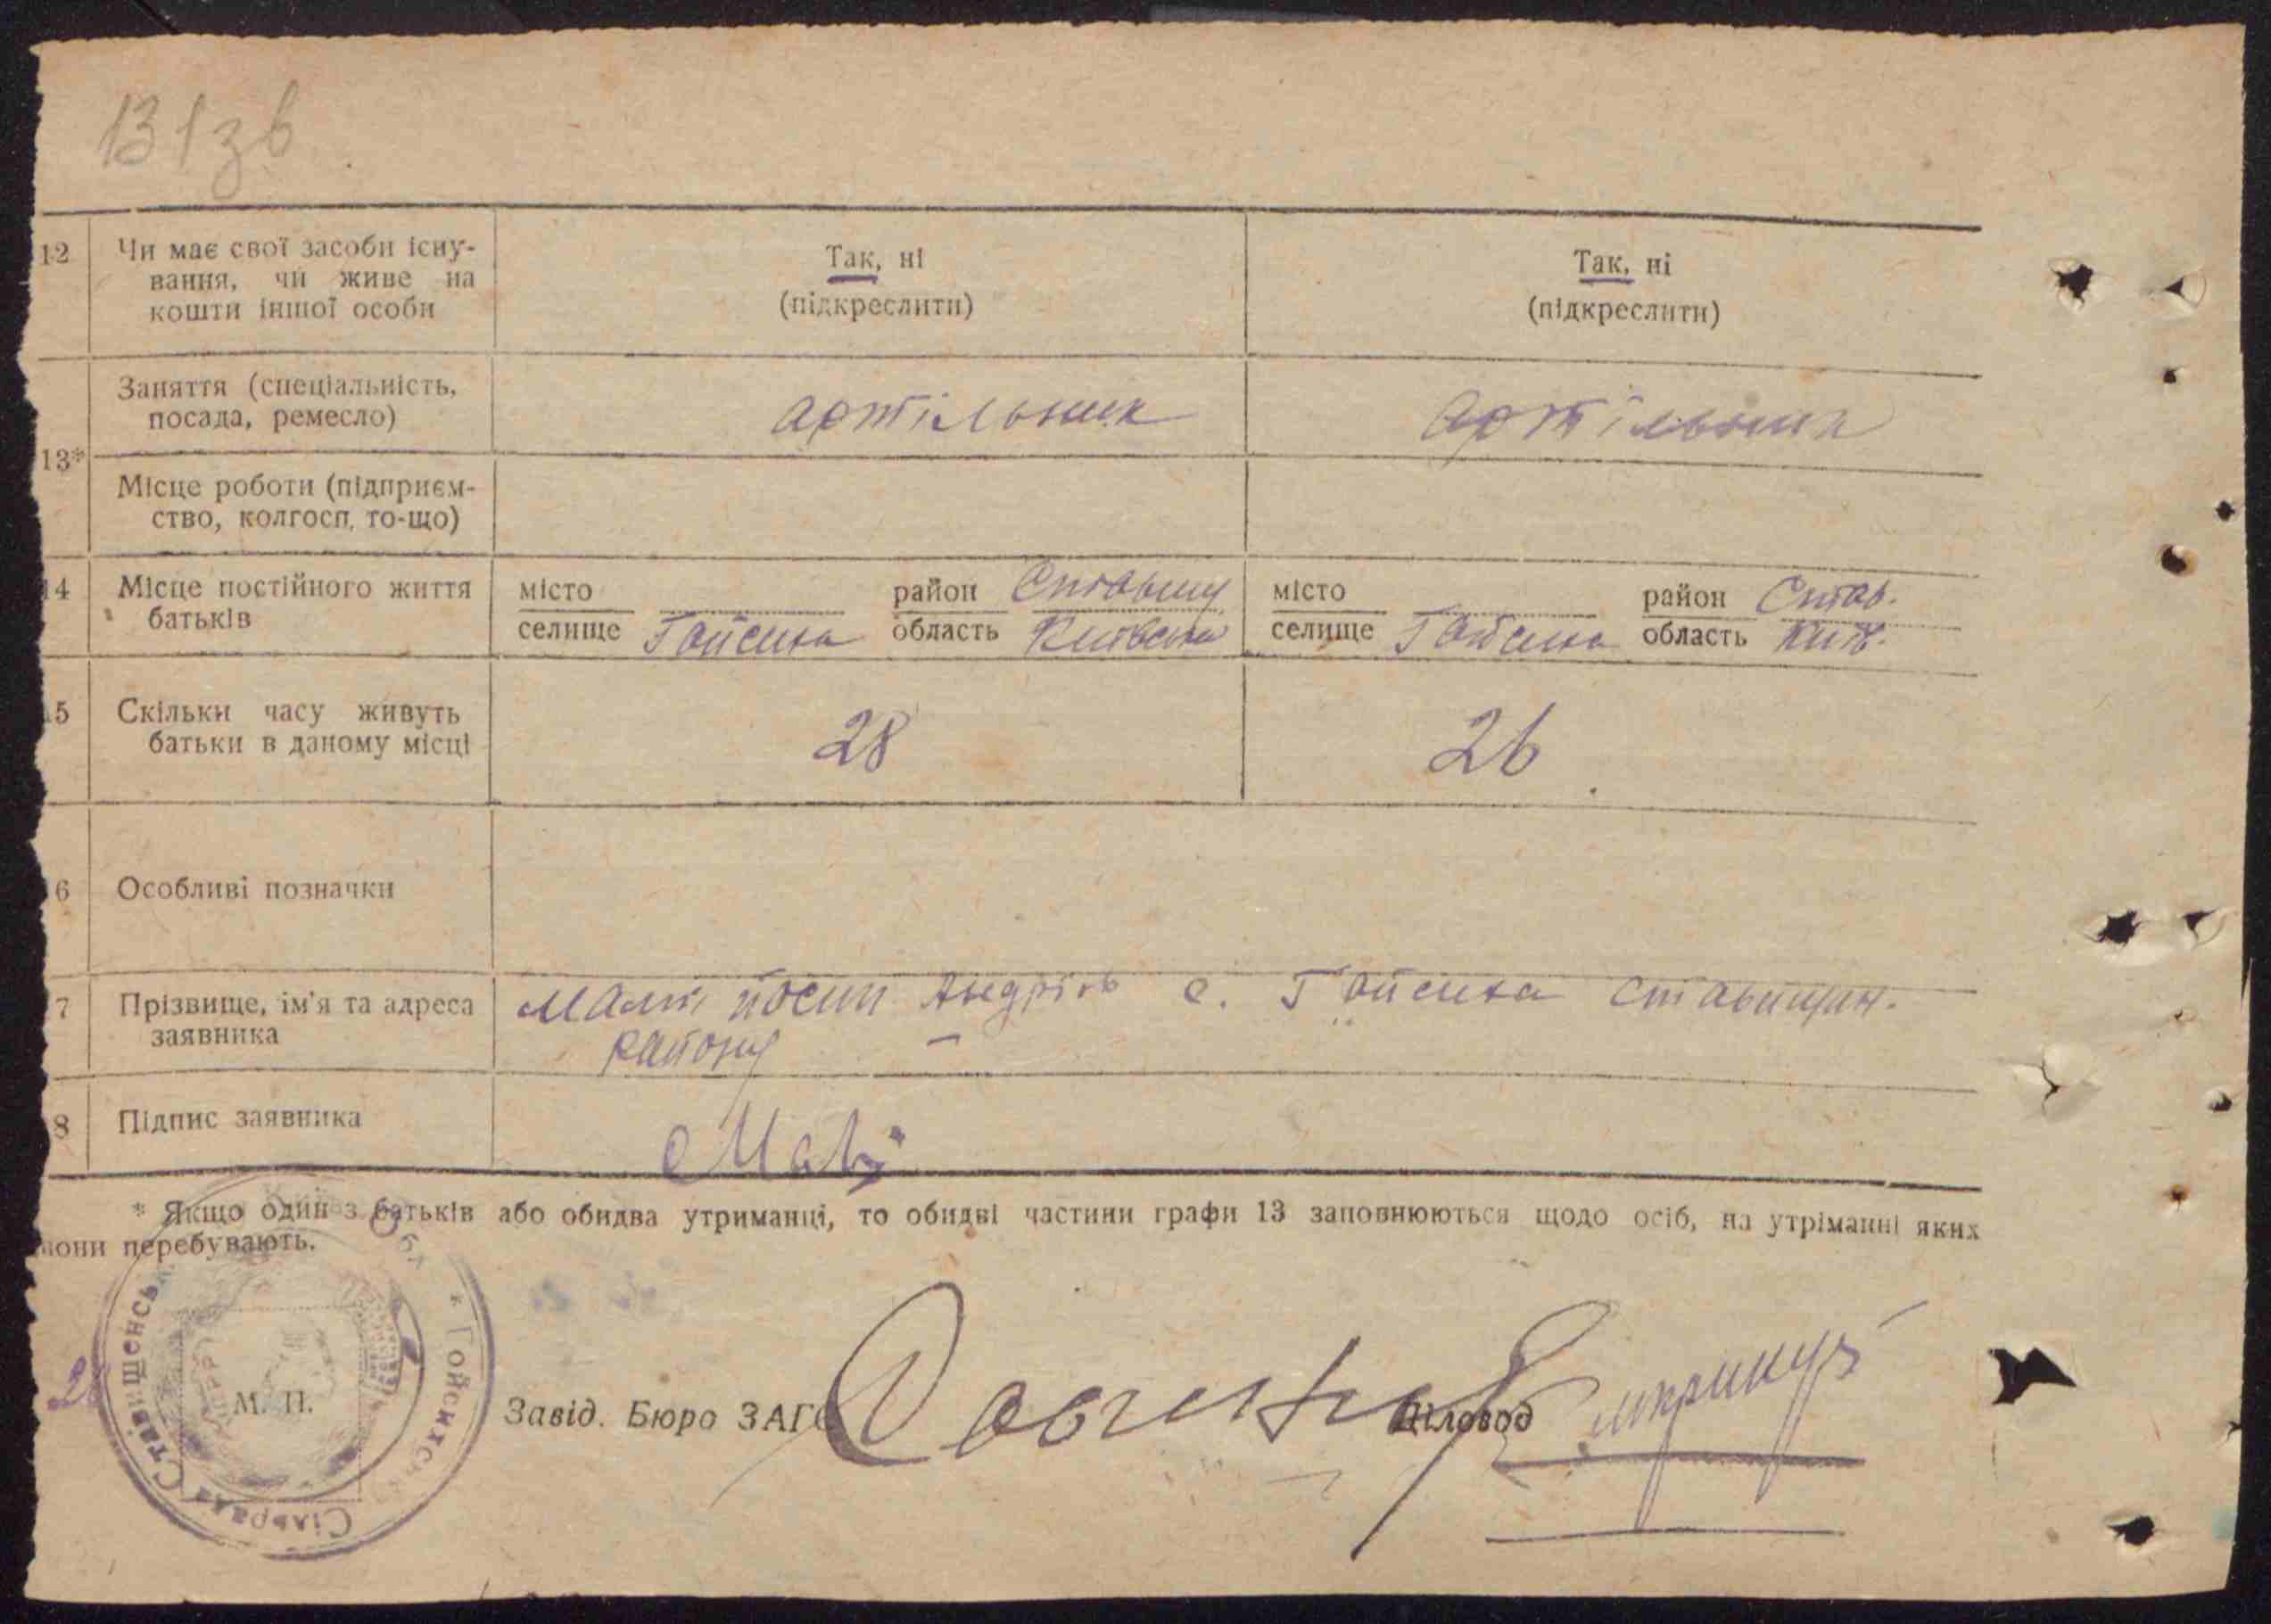 131зв
12 Чи має свої засоби існу-
вання, чи живе на
кошти іншої особи
Так, ні
(підкреслити)
Так, ні
(підкреслити)
13*
Заняття (спеціальність,
посада, ремесло)
артільник
артільник
Місце роботи (підприєм-
ство, колгосп, то-що)
14 Місце постійного життя
батьків
місто район Ставищ
селище Гойсиха область Київська
місто район Став.
селище Гойсиха область Київ.
15 Скільки часу живуть
батьки в даному місці
28
26
6 Особливі позначки
7 Прізвище, ім'я та адреса
заявника
Малі Йосип Андрієв с. Гойсиха Ставищан.
району
8 Підпис заявника
Малі
* Якщо один з батьків або обидва утриманці, то обидві частини графи 13 заповнюються щодо осіб, на утріманні яких
вони перебувають.
М. П.
Сільрада Ставищенськ
* Гойсихсь
Завід. Бюро ЗАГС
Діловод